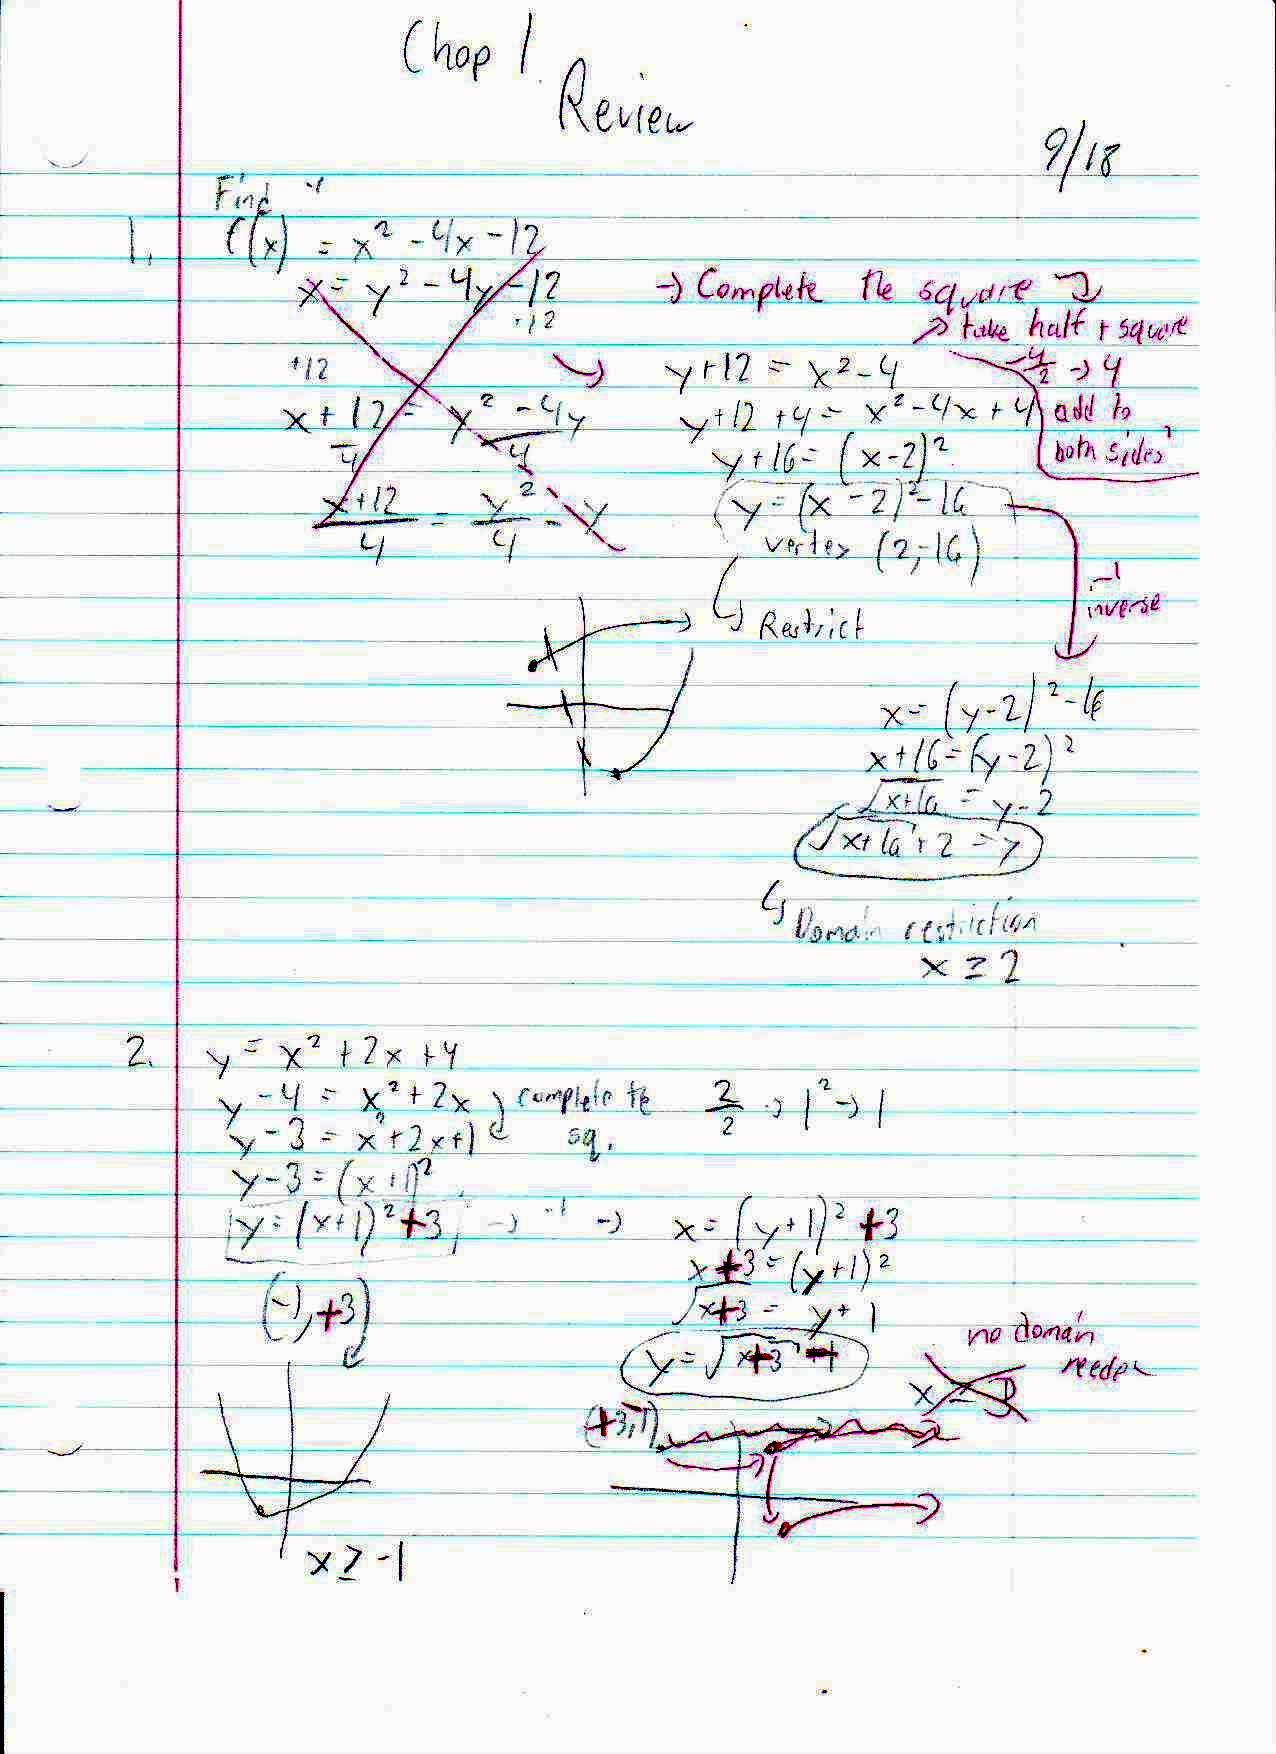 Chap 1
Review
9/18
Find ⁻¹
1. f(x) = x² - 4x - 12
x = y² - 4y - 12
+12
+12
x + 12 = y² - 4y
4 4
x+12 = y² - y
4 4
→ Complete the square
→ take half + square
-4/2 → 4
add to
both sides
y+12 = x² - 4
y+12 +4 = x² - 4x + 4
y+16 = (x-2)²
y = (x - 2)² - 16
vertex (2, -16)
↳ Restrict
⁻¹
inverse
x = (y-2)² - 16
x+16 = (y-2)²
√x+16 = y-2
√x+16 + 2 = y
↳ Domain restriction
x ≥ 2
2. y = x² + 2x + 4
y - 4 = x² + 2x complete the 2/2 → 1² → 1
y - 3 = x² + 2x + 1 sq.
y - 3 = (x+1)²
y = (x+1)² + 3 → ⁻¹ → x = (y+1)² + 3
x + 3 = (y+1)²
(-1, +3)
√x+3 = y + 1
y = √x+3 - 1
no domain
needed
x ≥ 3
(+3, -1)
x ≥ -1